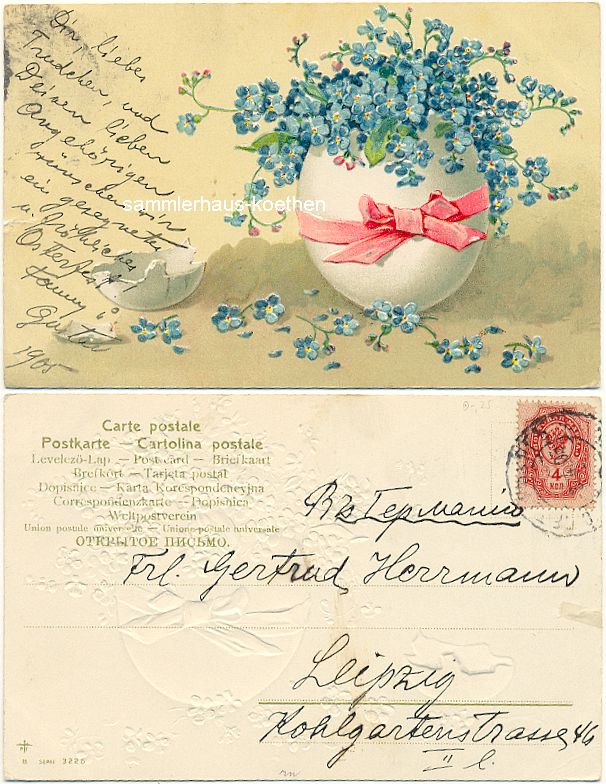 Dir, liebe
Trudchen, und
Deinen lieben
Angehörigen
wünschen wir
sammlerhaus-koethen
ein gesegnetes
u. fröhliches
Osterfest
1905
Carte postale
Postkarte — Cartolina postale
Levelező-Lap. — Post card — Briefkaart
Brefkort — Tarjeta postal
Dopisnice — Karta Korespondencyjna
Correspondenzkarte — Dopisnica
Weltpostverein
Union postale universelle — Unione postale universale
ОТКРЫТОЕ ПИСЬМО.
4
КОП
Въ Германію
Frl. Gertrud Herrmann
Leipzig
Kohlgartenstrasse 46
II l.
SERIE 3226